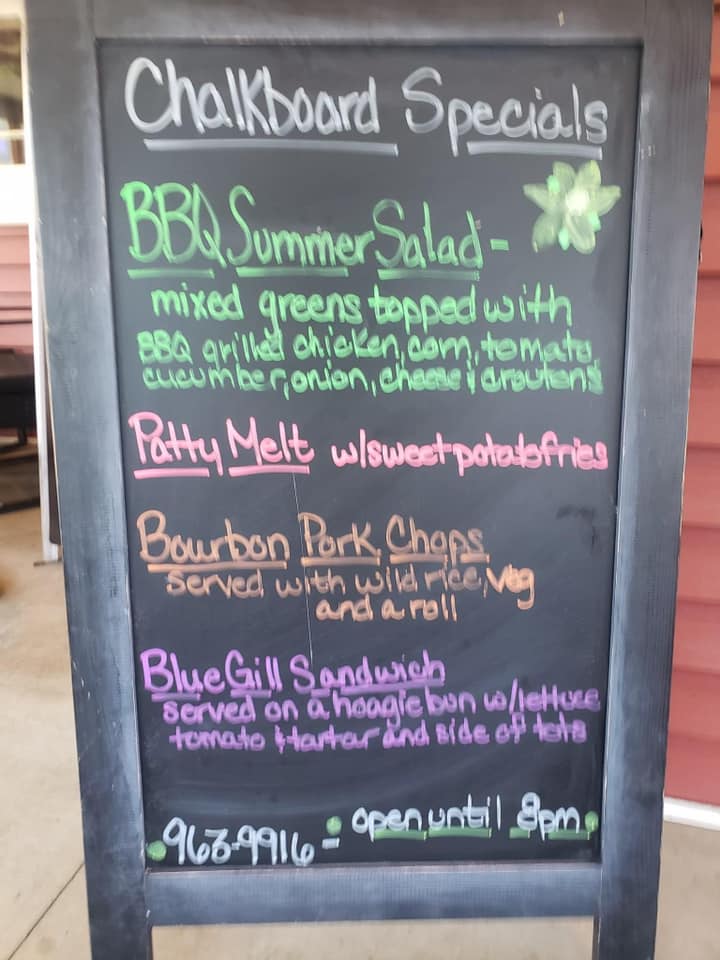 Chalkboard Specials
BBQ Summer Salad -
mixed greens topped with
BBQ grilled chicken, corn, tomato,
cucumber, onion, cheese & croutons
Patty Melt w/sweet potato fries
Bourbon Pork Chops
served with wild rice, veg
and a roll
Blue Gill Sandwich
served on a hoagie bun w/lettuce
tomato & tartar and side of tots
963-9916 - open until 8pm